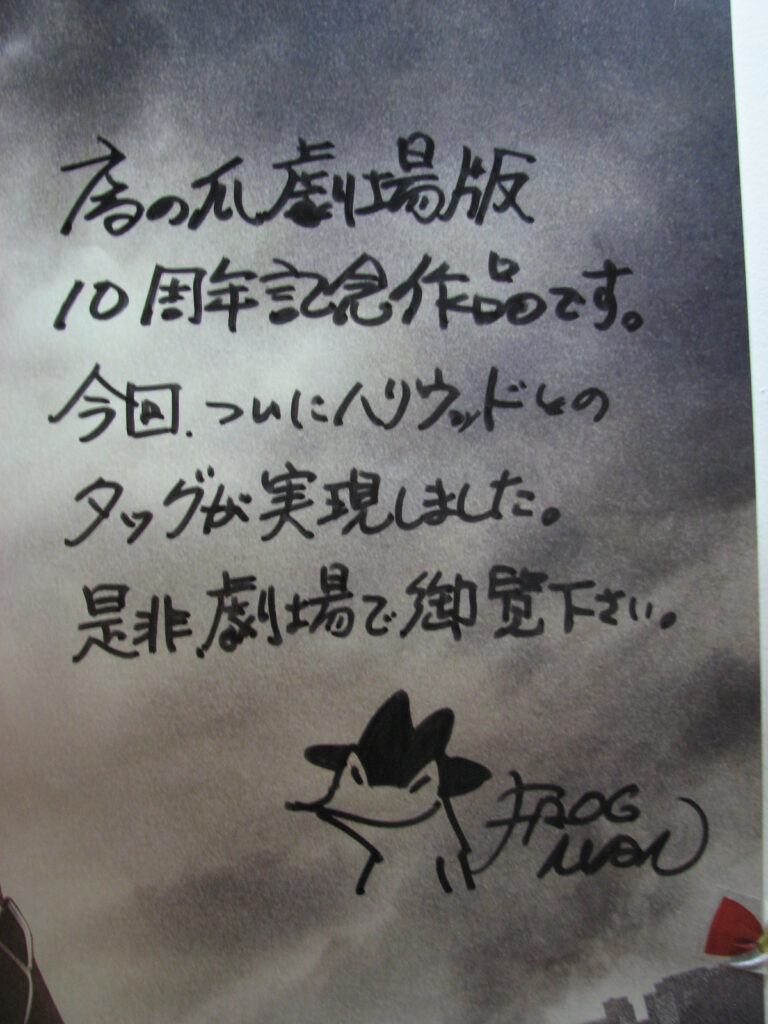 鷹の爪劇場版
10周年記念作品です。
今回、ついにハリウッドとの
タッグが実現しました。
是非、劇場で御覧下さい。
FROG
MAN